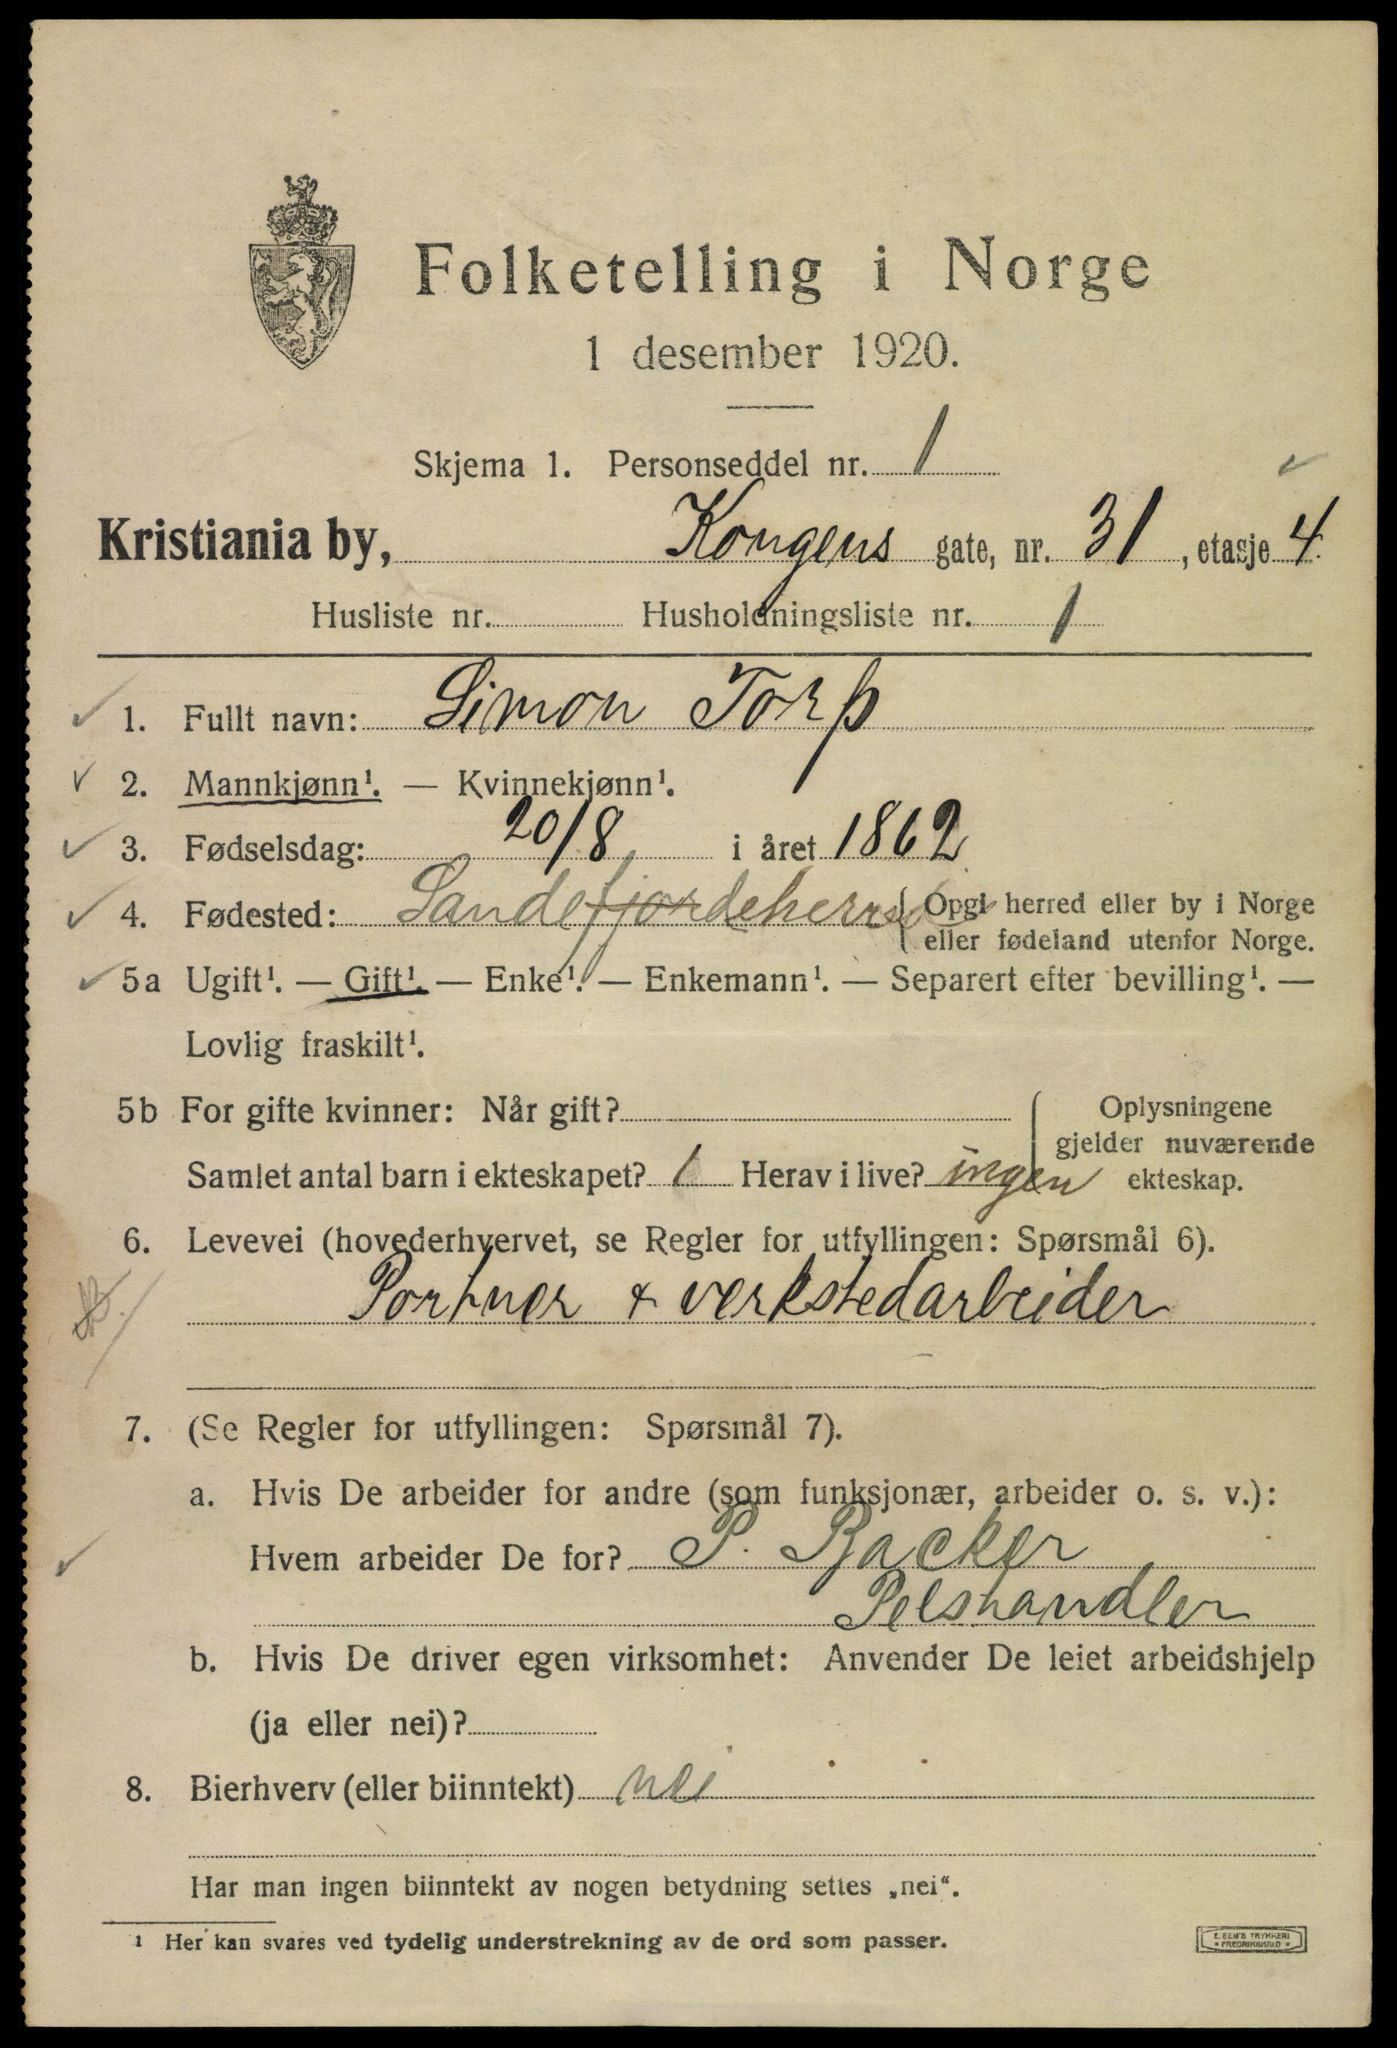 Folketelling i Norge
1 desember 1920.
Skjema 1. Personseddel nr. 1
Kristiania by, Kongens gate, nr. 31, etasje 4.
Husliste nr. Husholdningsliste nr. 1
1. Fullt navn: Simon Torp
2. Mannkjønn¹. — Kvinnekjønn¹.
3. Fødselsdag: 20/8 i året 1862
4. Fødested: Sandefjordeherred { Opgi herred eller by i Norge
eller fødeland utenfor Norge.
5a Ugift¹. — Gift¹. — Enke¹. — Enkemann¹. — Separert efter bevilling¹. —
Lovlig fraskilt¹.
5b For gifte kvinner: Når gift? Oplysningene
gjelder nuværende
Samlet antal barn i ekteskapet? 1 Herav i live? ingen ekteskap.
6. Levevei (hovederhvervet, se Regler for utfyllingen: Spørsmål 6).
Portner & verkstedarbeider
7. (Se Regler for utfyllingen: Spørsmål 7).
a. Hvis De arbeider for andre (som funksjonær, arbeider o. s. v.):
Hvem arbeider De for? P. Backer
Pelshandler
b. Hvis De driver egen virksomhet: Anvender De leiet arbeidshjelp
(ja eller nei)?
8. Bierhverv (eller biinntekt) nei
Har man ingen biinntekt av nogen betydning settes „nei“.
¹ Her kan svares ved tydelig understrekning av de ord som passer.
E. SEM'S TRYKKERI
• FREDRIKSHALD •